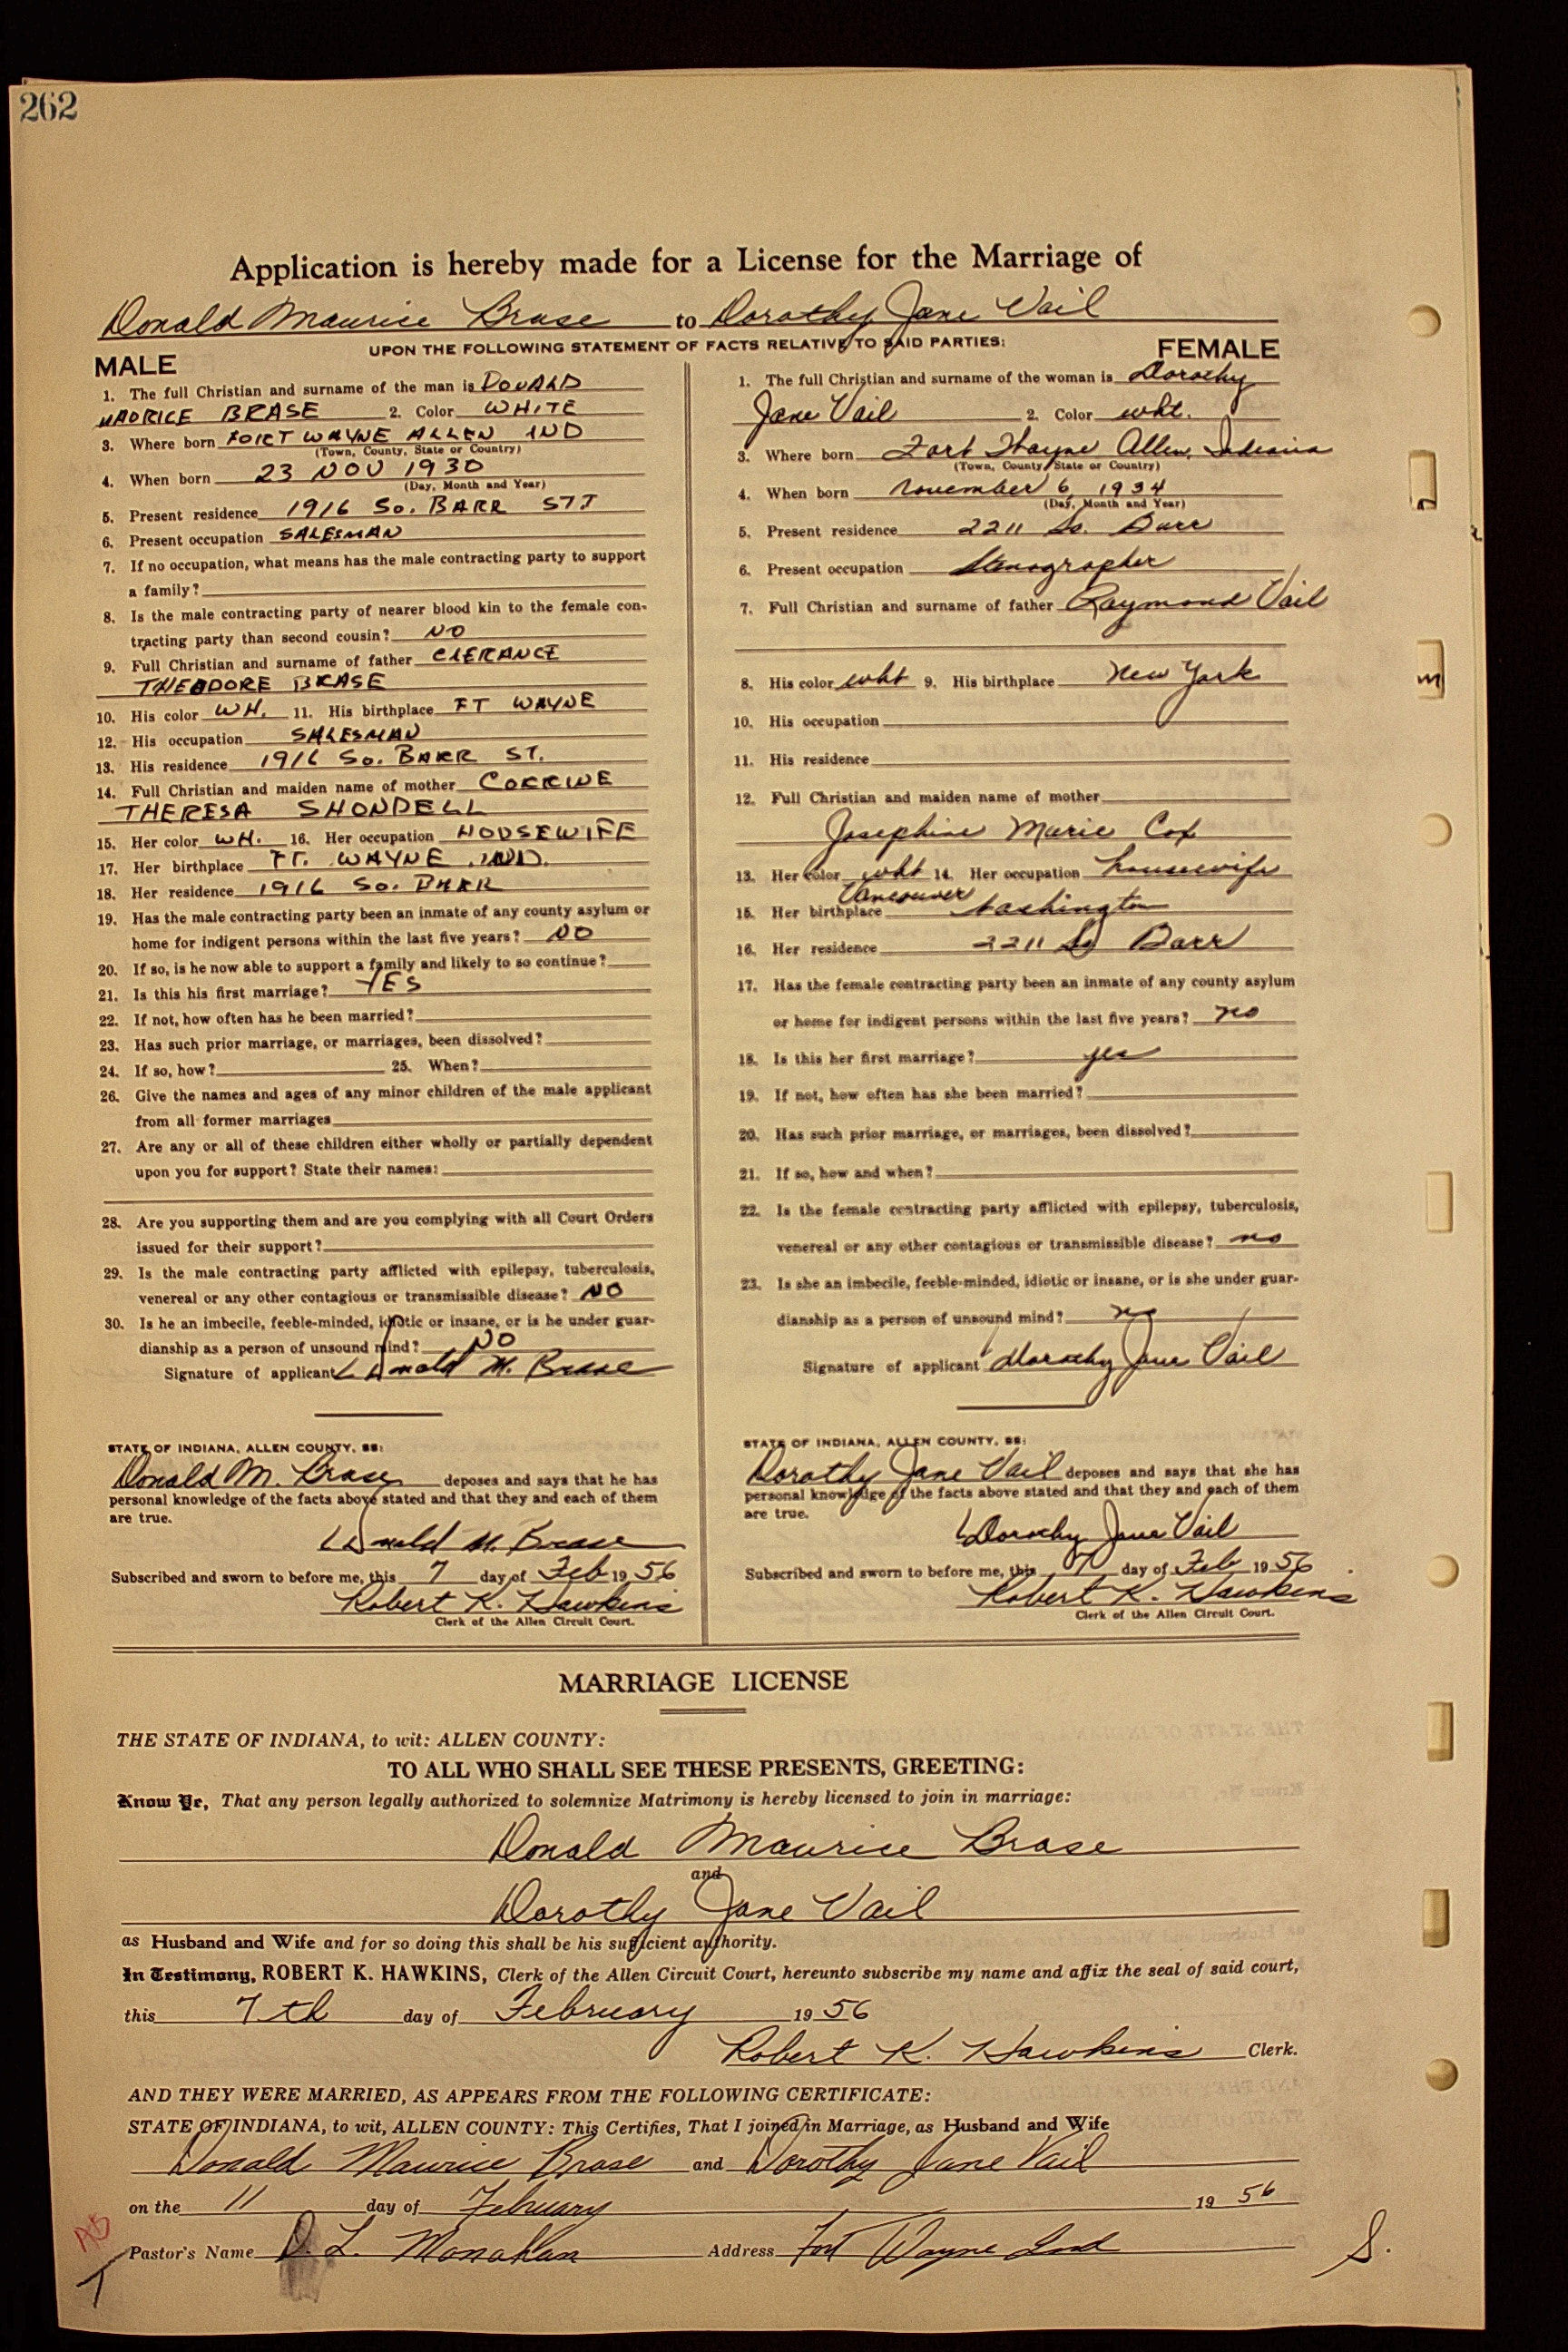 262
Application is hereby made for a License for the Marriage of
Donald Maurice Brase to Dorothy Jane Vail
UPON THE FOLLOWING STATEMENT OF FACTS RELATIVE TO SAID PARTIES:
MALE
1. The full Christian and surname of the man is DONALD
MAURICE BRASE 2. Color WHITE
3. Where born FORT WAYNE ALLEN IND
(Town, County, State or Country)
4. When born 23 NOV 1930
(Day, Month and Year)
5. Present residence 1916 So. BARR ST.
6. Present occupation SALESMAN
7. If no occupation, what means has the male contracting party to support
a family?
8. Is the male contracting party of nearer blood kin to the female con-
tracting party than second cousin? NO
9. Full Christian and surname of father CLERANCE
THEODORE BRASE
10. His color WH. 11. His birthplace FT WAYNE
12. His occupation SALESMAN
13. His residence 1916 So. BARR ST.
14. Full Christian and maiden name of mother CORRINE
THERESA SHONDELL
15. Her color WH. 16. Her occupation HOUSEWIFE
17. Her birthplace FT. WAYNE IND.
18. Her residence 1916 So. BARR
19. Has the male contracting party been an inmate of any county asylum or
home for indigent persons within the last five years? NO
20. If so, is he now able to support a family and likely to so continue?
21. Is this his first marriage? YES
22. If not, how often has he been married?
23. Has such prior marriage, or marriages, been dissolved?
24. If so, how? 25. When?
26. Give the names and ages of any minor children of the male applicant
from all former marriages
27. Are any or all of these children either wholly or partially dependent
upon you for support? State their names:
28. Are you supporting them and are you complying with all Court Orders
issued for their support?
29. Is the male contracting party afflicted with epilepsy, tuberculosis,
venereal or any other contagious or transmissible disease? NO
30. Is he an imbecile, feeble-minded, idiotic or insane, or is he under guar-
dianship as a person of unsound mind? NO
Signature of applicant Donald M. Brase
STATE OF INDIANA, ALLEN COUNTY, SS:
Donald M. Brase deposes and says that he has
personal knowledge of the facts above stated and that they and each of them
are true.
Donald M. Brase
Subscribed and sworn to before me, this 7 day of Feb 1956
Robert K. Hawkins
Clerk of the Allen Circuit Court.
FEMALE
1. The full Christian and surname of the woman is Dorothy
Jane Vail 2. Color wht.
3. Where born Fort Wayne Allen, Indiana
(Town, County, State or Country)
4. When born November 6, 1934
(Day, Month and Year)
5. Present residence 2211 So. Barr
6. Present occupation Stenographer
7. Full Christian and surname of father Raymond Vail
8. His color wht 9. His birthplace New York
10. His occupation
11. His residence
12. Full Christian and maiden name of mother
Josephine Marie Cox
13. Her color wht 14. Her occupation housewife
15. Her birthplace Vancouver Washington
16. Her residence 2211 So Barr
17. Has the female contracting party been an inmate of any county asylum
or home for indigent persons within the last five years? no
18. Is this her first marriage? yes
19. If not, how often has she been married?
20. Has such prior marriage, or marriages, been dissolved?
21. If so, how and when?
22. Is the female contracting party afflicted with epilepsy, tuberculosis,
venereal or any other contagious or transmissible disease? no
23. Is she an imbecile, feeble-minded, idiotic or insane, or is she under guar-
dianship as a person of unsound mind? no
Signature of applicant Dorothy Jane Vail
STATE OF INDIANA, ALLEN COUNTY, SS:
Dorothy Jane Vail deposes and says that she has
personal knowledge of the facts above stated and that they and each of them
are true.
Dorothy Jane Vail
Subscribed and sworn to before me, this 7 day of Feb 1956
Robert K. Hawkins
Clerk of the Allen Circuit Court.
MARRIAGE LICENSE
THE STATE OF INDIANA, to wit: ALLEN COUNTY:
TO ALL WHO SHALL SEE THESE PRESENTS, GREETING:
Know Ye, That any person legally authorized to solemnize Matrimony is hereby licensed to join in marriage:
Donald Maurice Brase
and
Dorothy Jane Vail
as Husband and Wife and for so doing this shall be his sufficient authority.
In Testimony, ROBERT K. HAWKINS, Clerk of the Allen Circuit Court, hereunto subscribe my name and affix the seal of said court,
this 7th day of February 1956
Robert K. Hawkins Clerk.
AND THEY WERE MARRIED, AS APPEARS FROM THE FOLLOWING CERTIFICATE:
STATE OF INDIANA, to wit, ALLEN COUNTY: This Certifies, That I joined in Marriage, as Husband and Wife
Donald Maurice Brase and Dorothy Jane Vail
on the 11 day of February 1956
Pastor's Name D. L. Monahan Address Fort Wayne Ind
S.